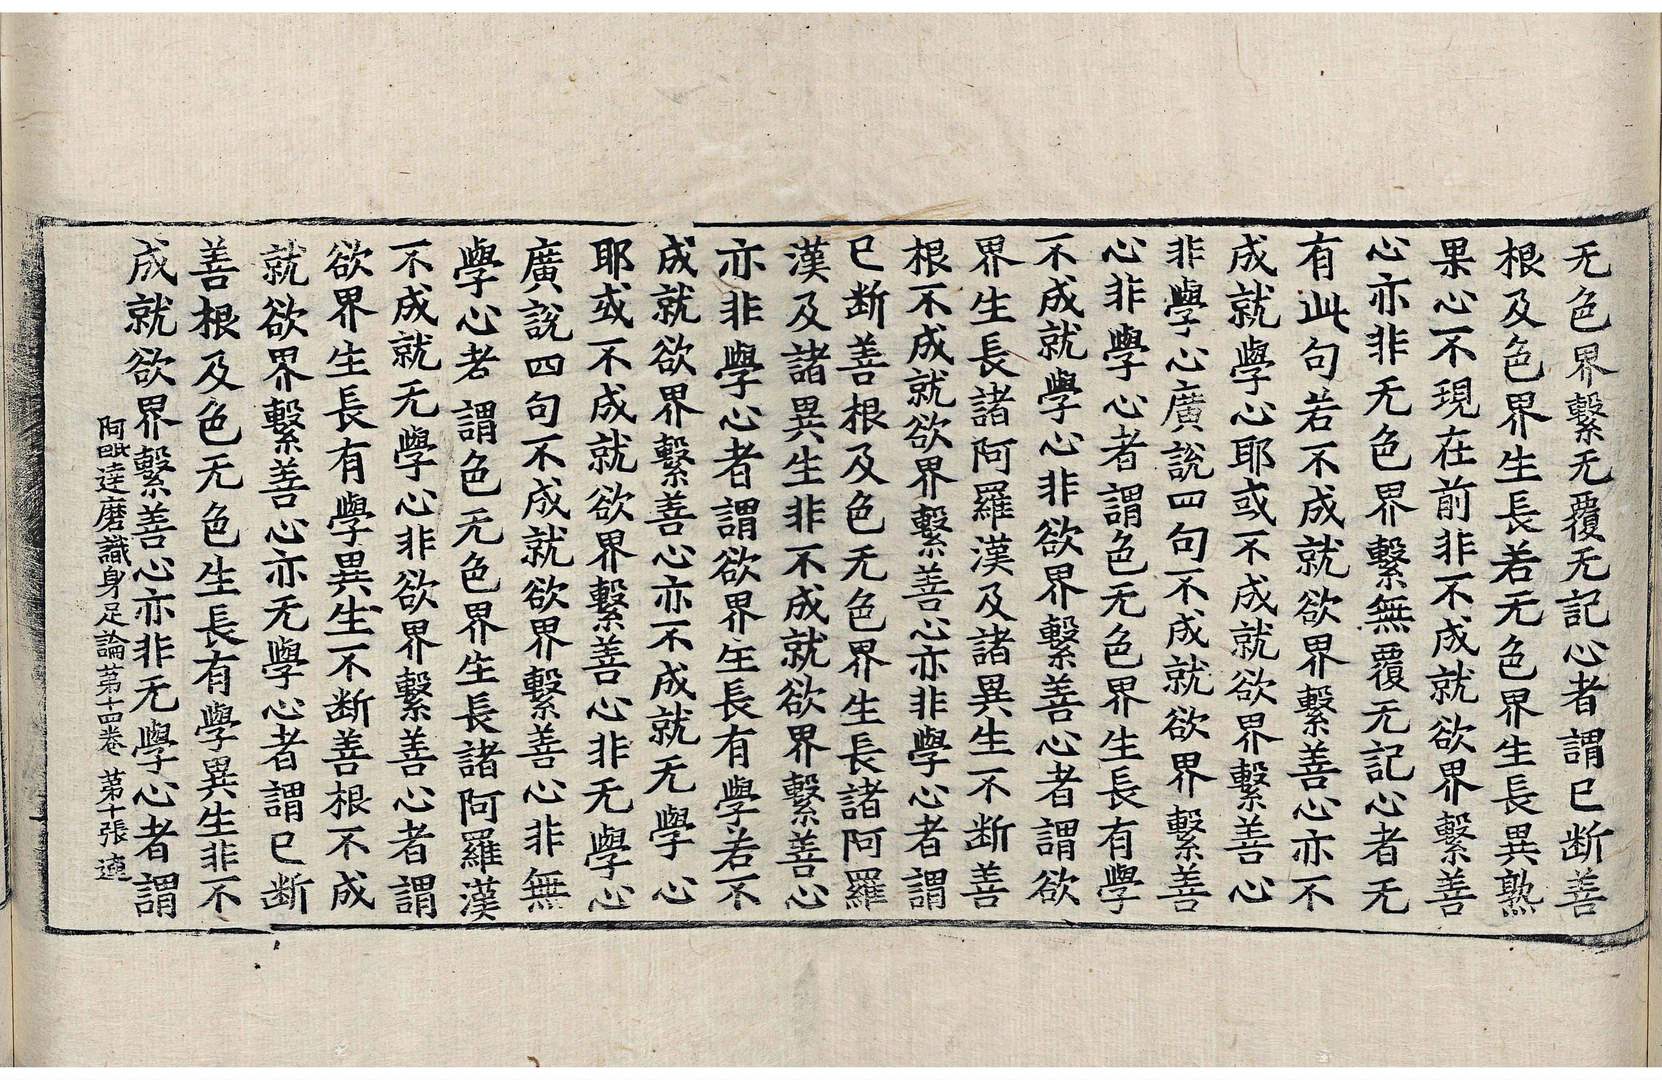 无色界繫无覆无記心者謂已断善
根及色界生長若无色界生長異熟
果心不現在前非不成就欲界繫善
心亦非无色界繫無覆无記心者无
有此句若不成就欲界繫善心亦不
成就學心耶或不成就欲界繫善心
非學心廣說四句不成就欲界繫善
心非學心者謂色无色界生長有學
不成就學心非欲界繫善心者謂欲
界生長諸阿羅漢及諸異生不断善
根不成就欲界繫善心亦非學心者謂
已断善根及色无色界生長諸阿羅
漢及諸異生非不成就欲界繫善心
亦非學心者謂欲界生長有學若不
成就欲界繫善心亦不成就无學心
耶或不成就欲界繫善心非无學心
廣說四句不成就欲界繫善心非無
學心者謂色无色界生長諸阿羅漢
不成就无學心非欲界繫善心者謂
欲界生長有學異生不断善根不成
就欲界繫善心亦无學心者謂已断
善根及色无色生長有學異生非不
成就欲界繫善心亦非无學心者謂
阿毗達磨識身足論第十四卷 第十張 連